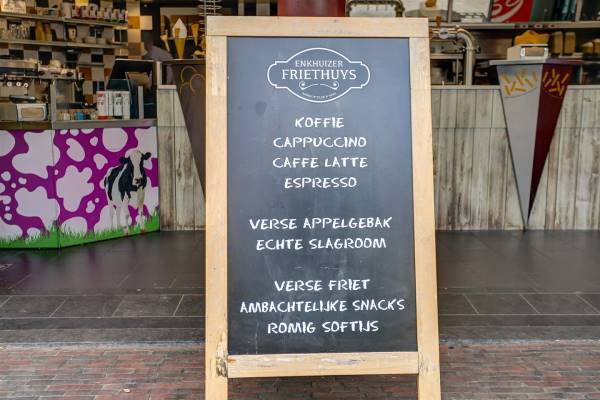 ENKHUIZER
FRIETHUYS
KOFFIE
CAPPUCCINO
CAFFE LATTE
ESPRESSO
VERSE APPELGEBAK
ECHTE SLAGROOM
VERSE FRIET
AMBACHTELIJKE SNACKS
ROMIG SOFTIJS